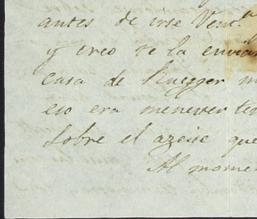 antes de irse Ventª
y creo se la envia
casa de Ruegger m
eso era menester te
sobre el azeite que
Al momen